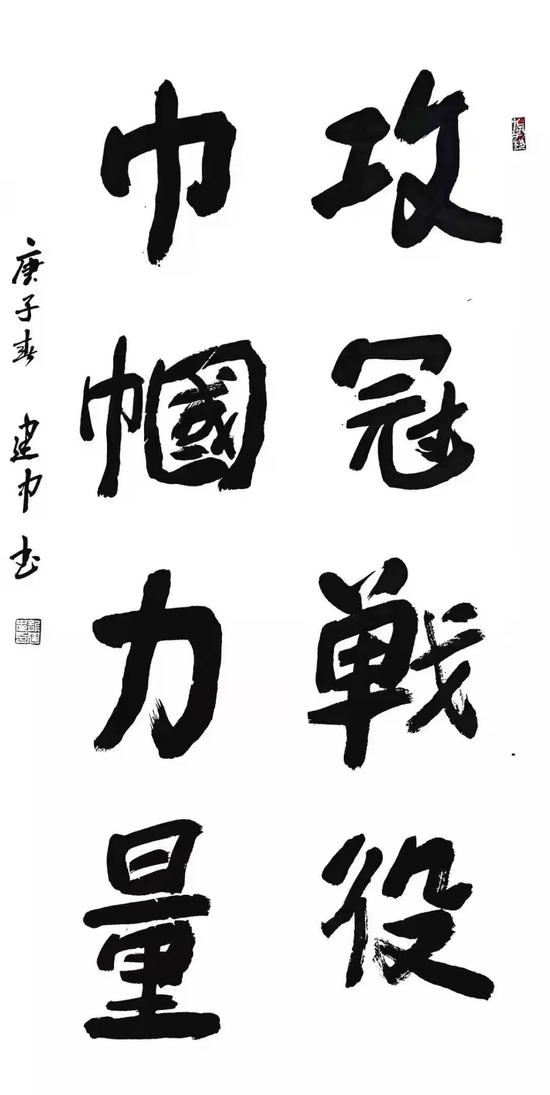 攻冠戰役
巾幗力量
庚子春 建中书